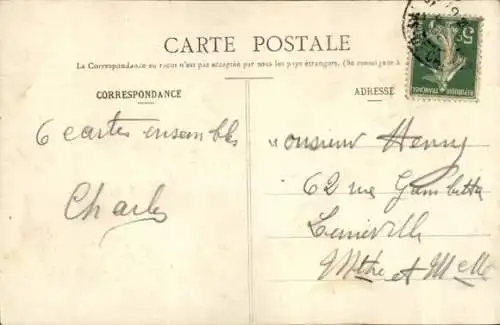 CARTE POSTALE
La Correspondance au recto n'est pas acceptée par tous les pays étrangers. (Se renseigner à
CORRESPONDANCE
ADRESSE
5c
REPUBLIQUE FRANÇAISE
6 cartes ensembles
Charles
Monsieur Henry
62 rue Gambetta
Luneville
Mthe et Mlle